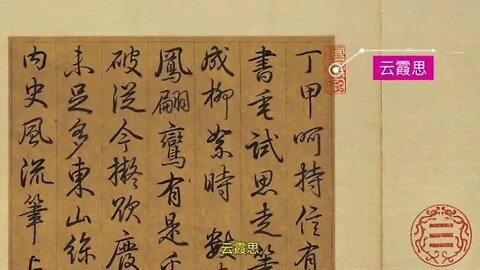 云霞思
丁甲呵持信有
書毛試思走筆
成柳絮時
鳳鸞有是
破從今擬欲廢
未足多東山絲
内史風流筆
云霞思